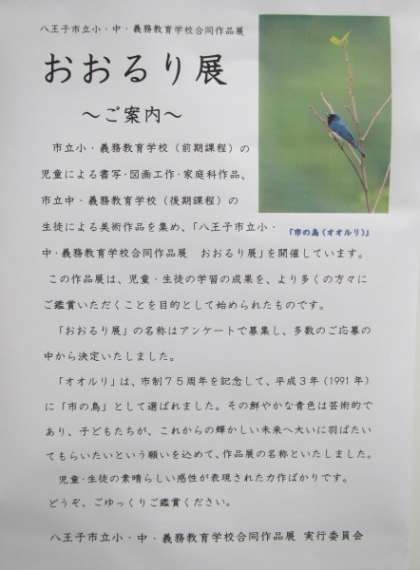 八王子市立小・中・義務教育学校合同作品展
おおるり展
～ご案内～
市立小・義務教育学校（前期課程）の
児童による書写・図画工作・家庭科作品、
市立中・義務教育学校（後期課程）の
生徒による美術作品を集め、「八王子市立小・
「市の鳥（オオルリ）」
中・義務教育学校合同作品展　おおるり展」を開催しています。
この作品展は、児童・生徒の学習の成果を、より多くの方々に
ご鑑賞いただくことを目的として始められたものです。
「おおるり展」の名称はアンケートで募集し、多数のご応募の
中から決定いたしました。
「オオルリ」は、市制７５周年を記念して、平成３年（1991年）
に「市の鳥」として選ばれました。その鮮やかな青色は芸術的で
あり、子どもたちが、これからの輝かしい未来へ大いに羽ばたい
てもらいたいという願いを込めて、作品展の名称といたしました。
児童・生徒の素晴らしい感性が表現された力作ばかりです。
どうぞ、ごゆっくりご鑑賞ください。
八王子市立小・中・義務教育学校合同作品展 実行委員会